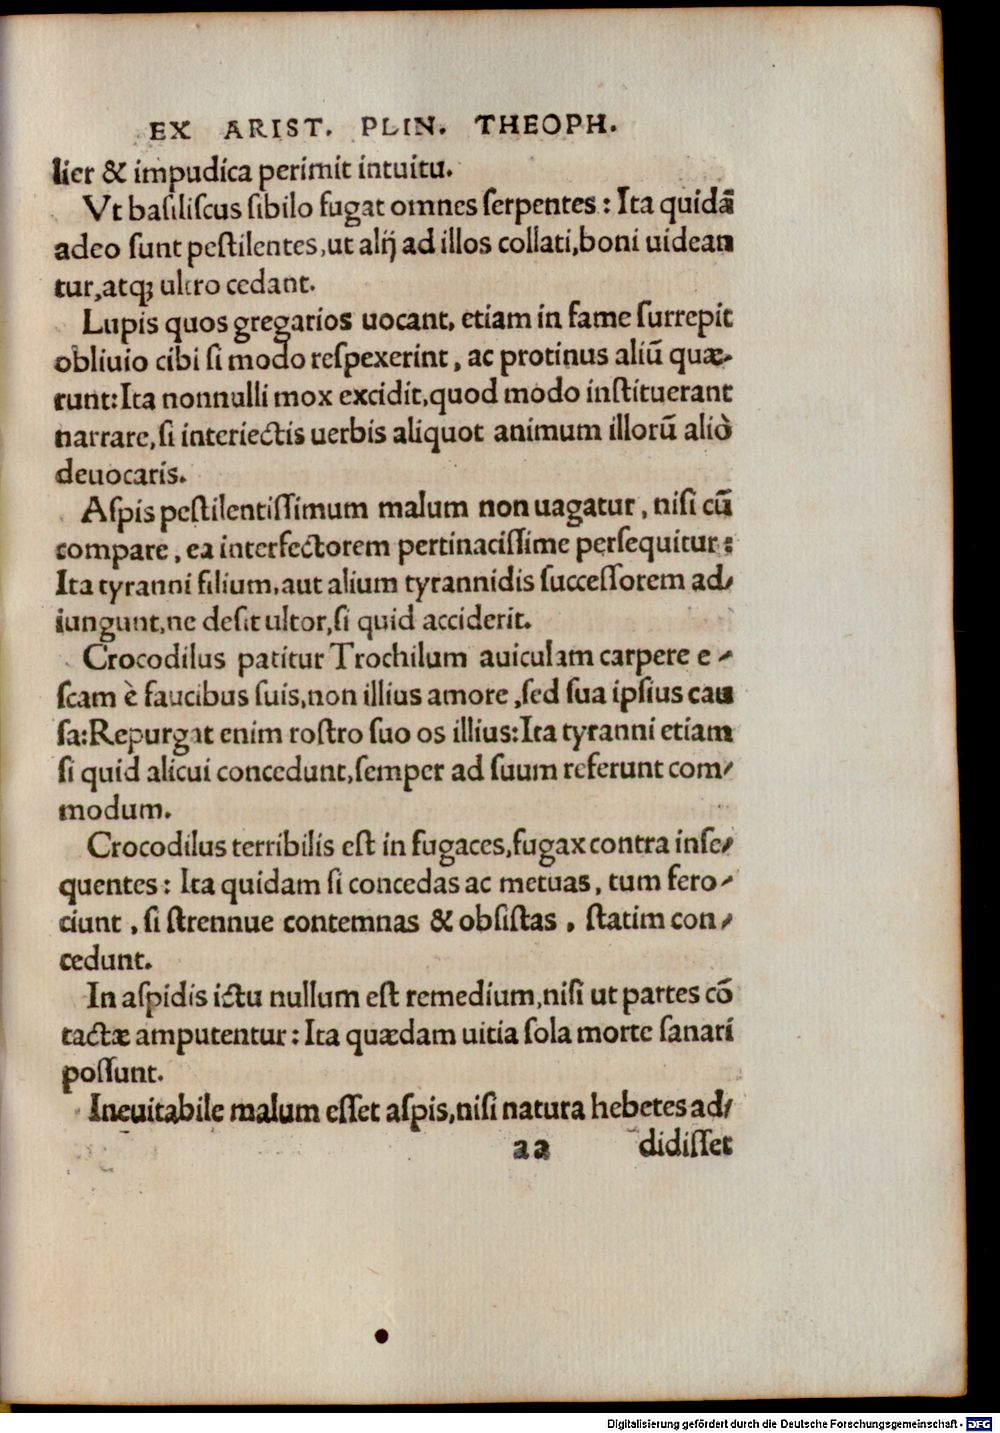 EX ARIST. PLIN. THEOPH.
lier & impudica perimit intuitu.
Vt basiliscus sibilo fugat omnes serpentes: Ita quidā
adeo sunt pestilentes, ut alij ad illos collati, boni uidean
tur, atq; ultro cedant.
Lupis quos gregarios uocant, etiam in fame surrepit
obliuio cibi si modo respexerint, ac protinus aliū quæ-
runt: Ita nonnulli mox excidit, quod modo instituerant
narrare, si interiectis uerbis aliquot animum illorū aliò
deuocaris.
Aspis pestilentissimum malum non uagatur, nisi cū
compare, ea interfectorem pertinacissime persequitur:
Ita tyranni filium, aut alium tyrannidis successorem ad-
iungunt, ne desit ultor, si quid acciderit.
Crocodilus patitur Trochilum auiculam carpere e-
scam è faucibus suis, non illius amore, sed sua ipsius cau
sa: Repurgat enim rostro suo os illius: Ita tyranni etiam
si quid alicui concedunt, semper ad suum referunt com-
modum.
Crocodilus terribilis est in fugaces, fugax contra inse-
quentes: Ita quidam si concedas ac metuas, tum fero-
ciunt, si strennue contemnas & obsistas, statim con-
cedunt.
In aspidis ictu nullum est remedium, nisi ut partes cō
tactæ amputentur: Ita quædam uitia sola morte sanari
possunt.
Ineuitabile malum esset aspis, nisi natura hebetes ad-
aa didisset
Digitalisierung gefördert durch die Deutsche Forschungsgemeinschaft - DFG